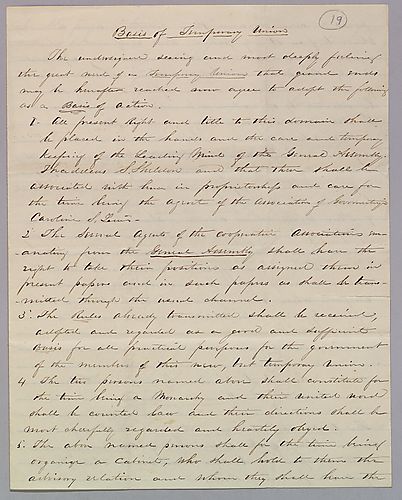 19
Basis of Temporary Union
The undersigned seeing and most deeply feeling
the great need of a Temporary Union that grand ends
may be hereafter reached now agree to adopt the following
as a Basis of action.
1. All present Right and title to this domain shall
be placed in the hands and the care and temporary
keeping of the Leading Mind of the General Assembly
Thaddeus S. Sheldon and that there shall be
associated with him in proprietorship and care for
the time being the agent of the Association of
Caroline S. Lewis
2. The several Agents of the cooperative Associations em-
anating from the General Assembly shall have the
right to take their positions as assigned them in
present papers and in such papers as shall be trans-
mitted through the usual channel.
3. The Rules already transmitted shall be received,
adopted and regarded as a good and sufficient
Basis for all practical purposes for the government
of the members of this new, but temporary Union.
4. The two persons named above shall constitute for
the time being a Monarchy and their united word
shall be counted Law and their directions shall be
most cheerfully regarded and heartily obeyed.
5. The above named persons shall for the time being
organize a Cabinet, who shall hold to them the
advisory relation and whom they shall have the